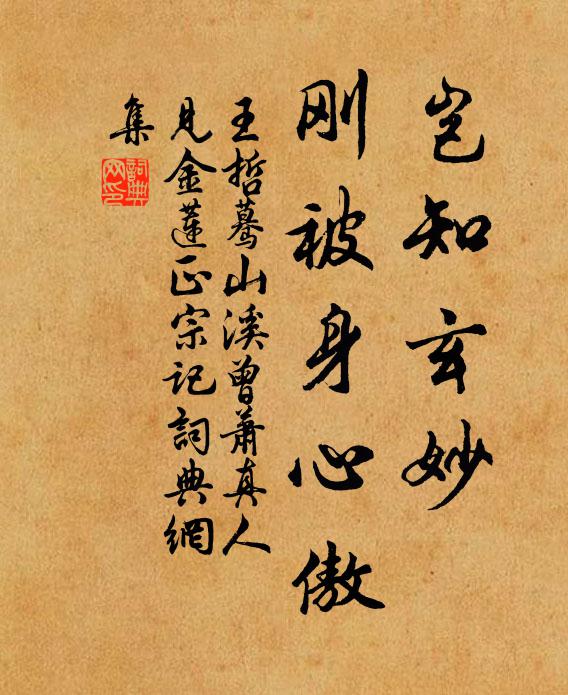 岂知玄妙
刚被身心傲
王哲蓦山溪曾萧真人
见金莲正宗记词典網
集
詞典網印